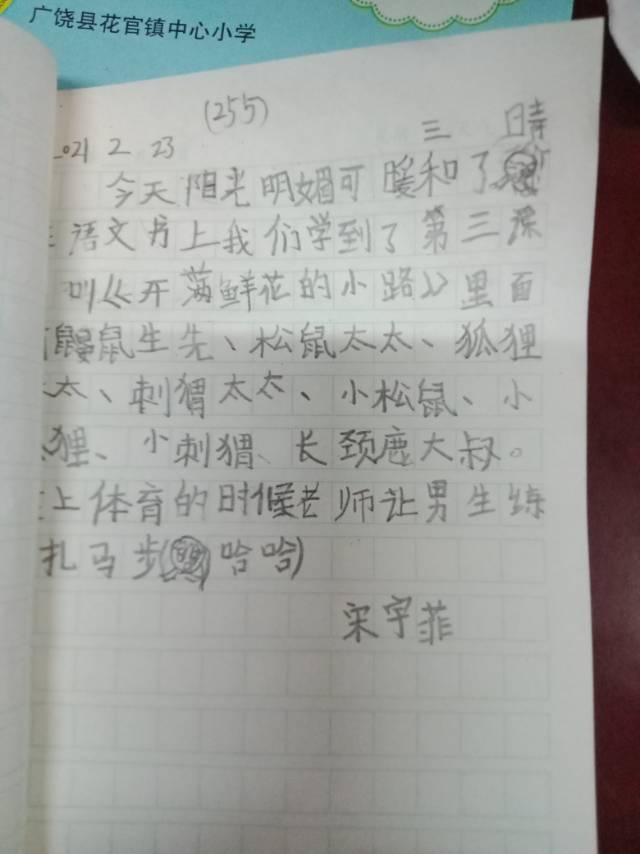 广饶县花官镇中心小学
(255)
2021 2 23 三 晴
今天阳光明媚可暖和了
语文书上我们学到了第三课
叫《开满鲜花的小路》里面
鼹鼠生先、松鼠太太、狐狸
太、刺猬太太、小松鼠、小
狸、小刺猬、长颈鹿大叔。
上体育的时候老师让男生练
扎马步(哈哈)
宋宇菲